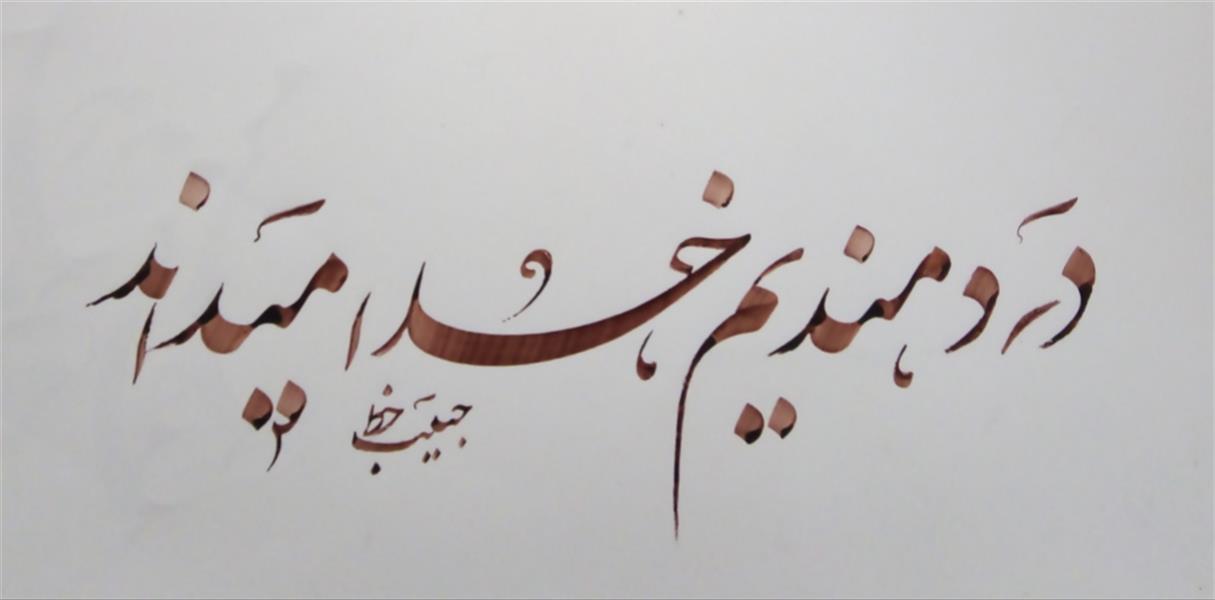 دردمندیم خدا میداند
حبیب خط